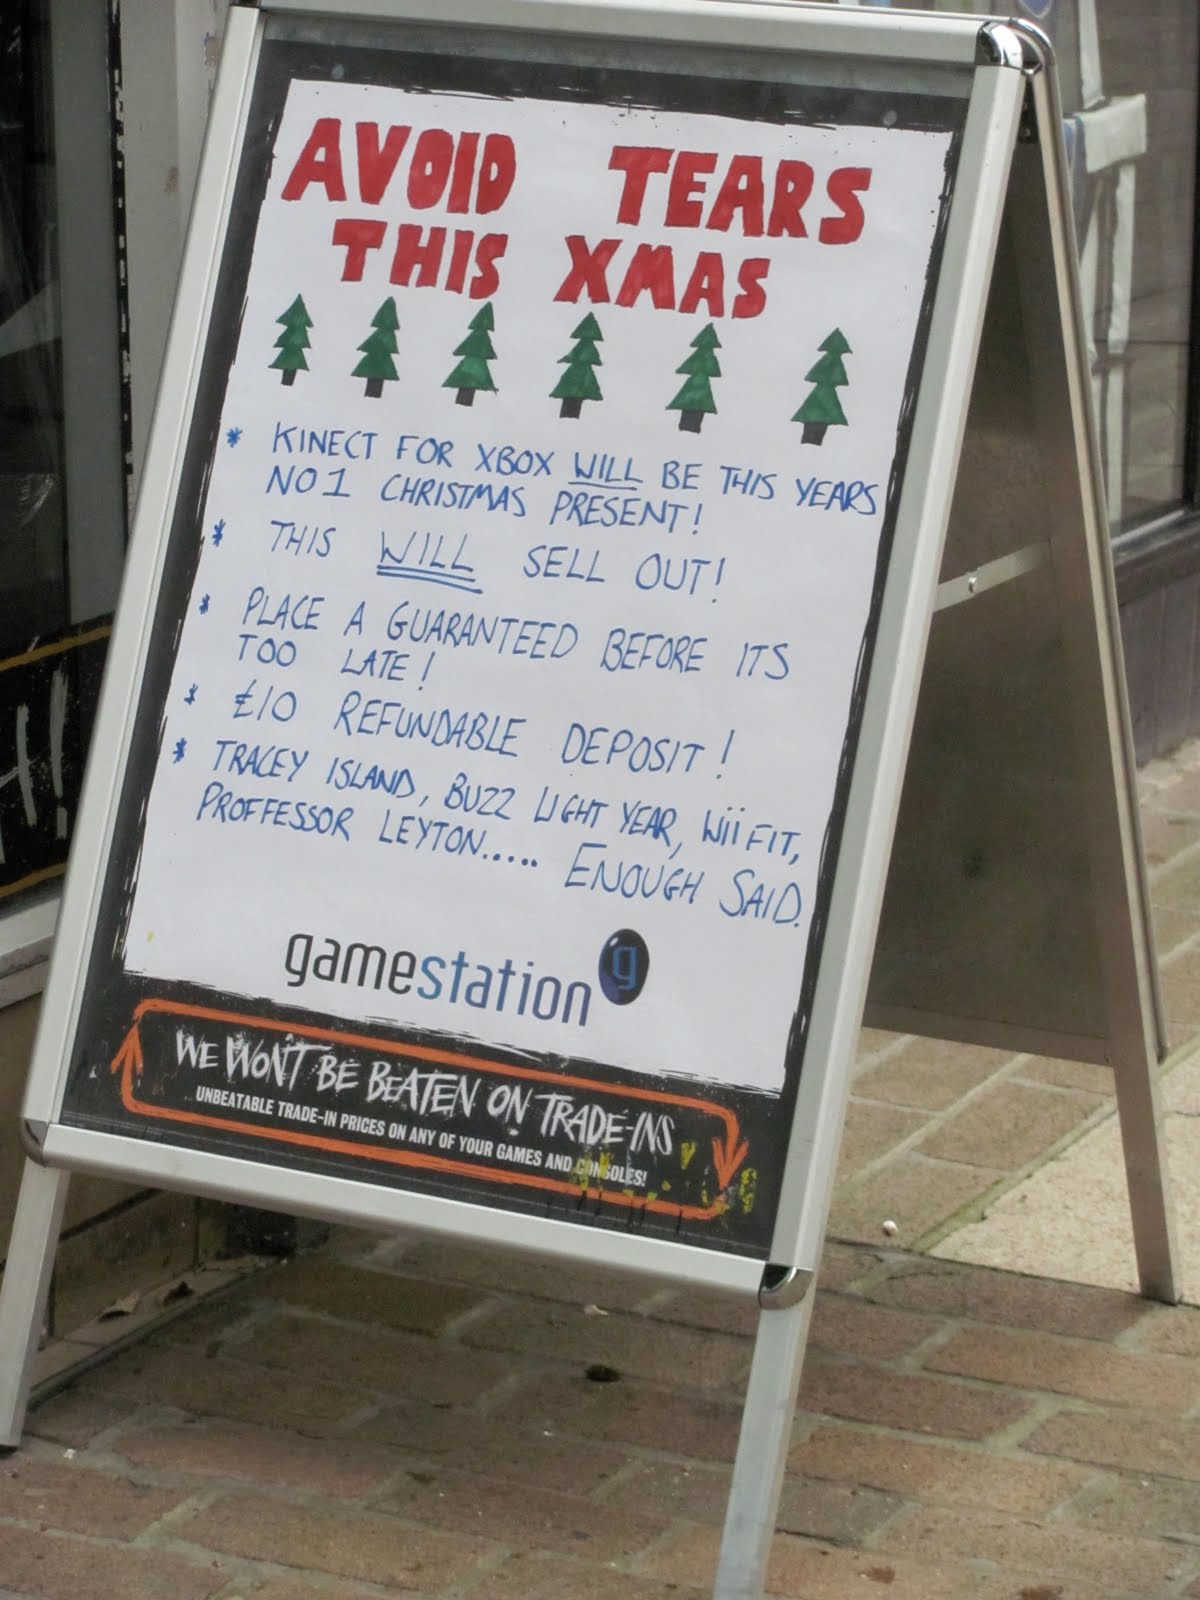 AVOID TEARS
THIS XMAS
* KINECT FOR XBOX WILL BE THIS YEARS
NO1 CHRISTMAS PRESENT!
* THIS WILL SELL OUT!
* PLACE A GUARANTEED BEFORE ITS
TOO LATE!
* £10 REFUNDABLE DEPOSIT!
* TRACEY ISLAND, BUZZ LIGHT YEAR, Wii FIT,
PROFFESSOR LEYTON..... ENOUGH SAID.
gamestation g
WE WON'T BE BEATEN ON TRADE-INS
UNBEATABLE TRADE-IN PRICES ON ANY OF YOUR GAMES AND CONSOLES!